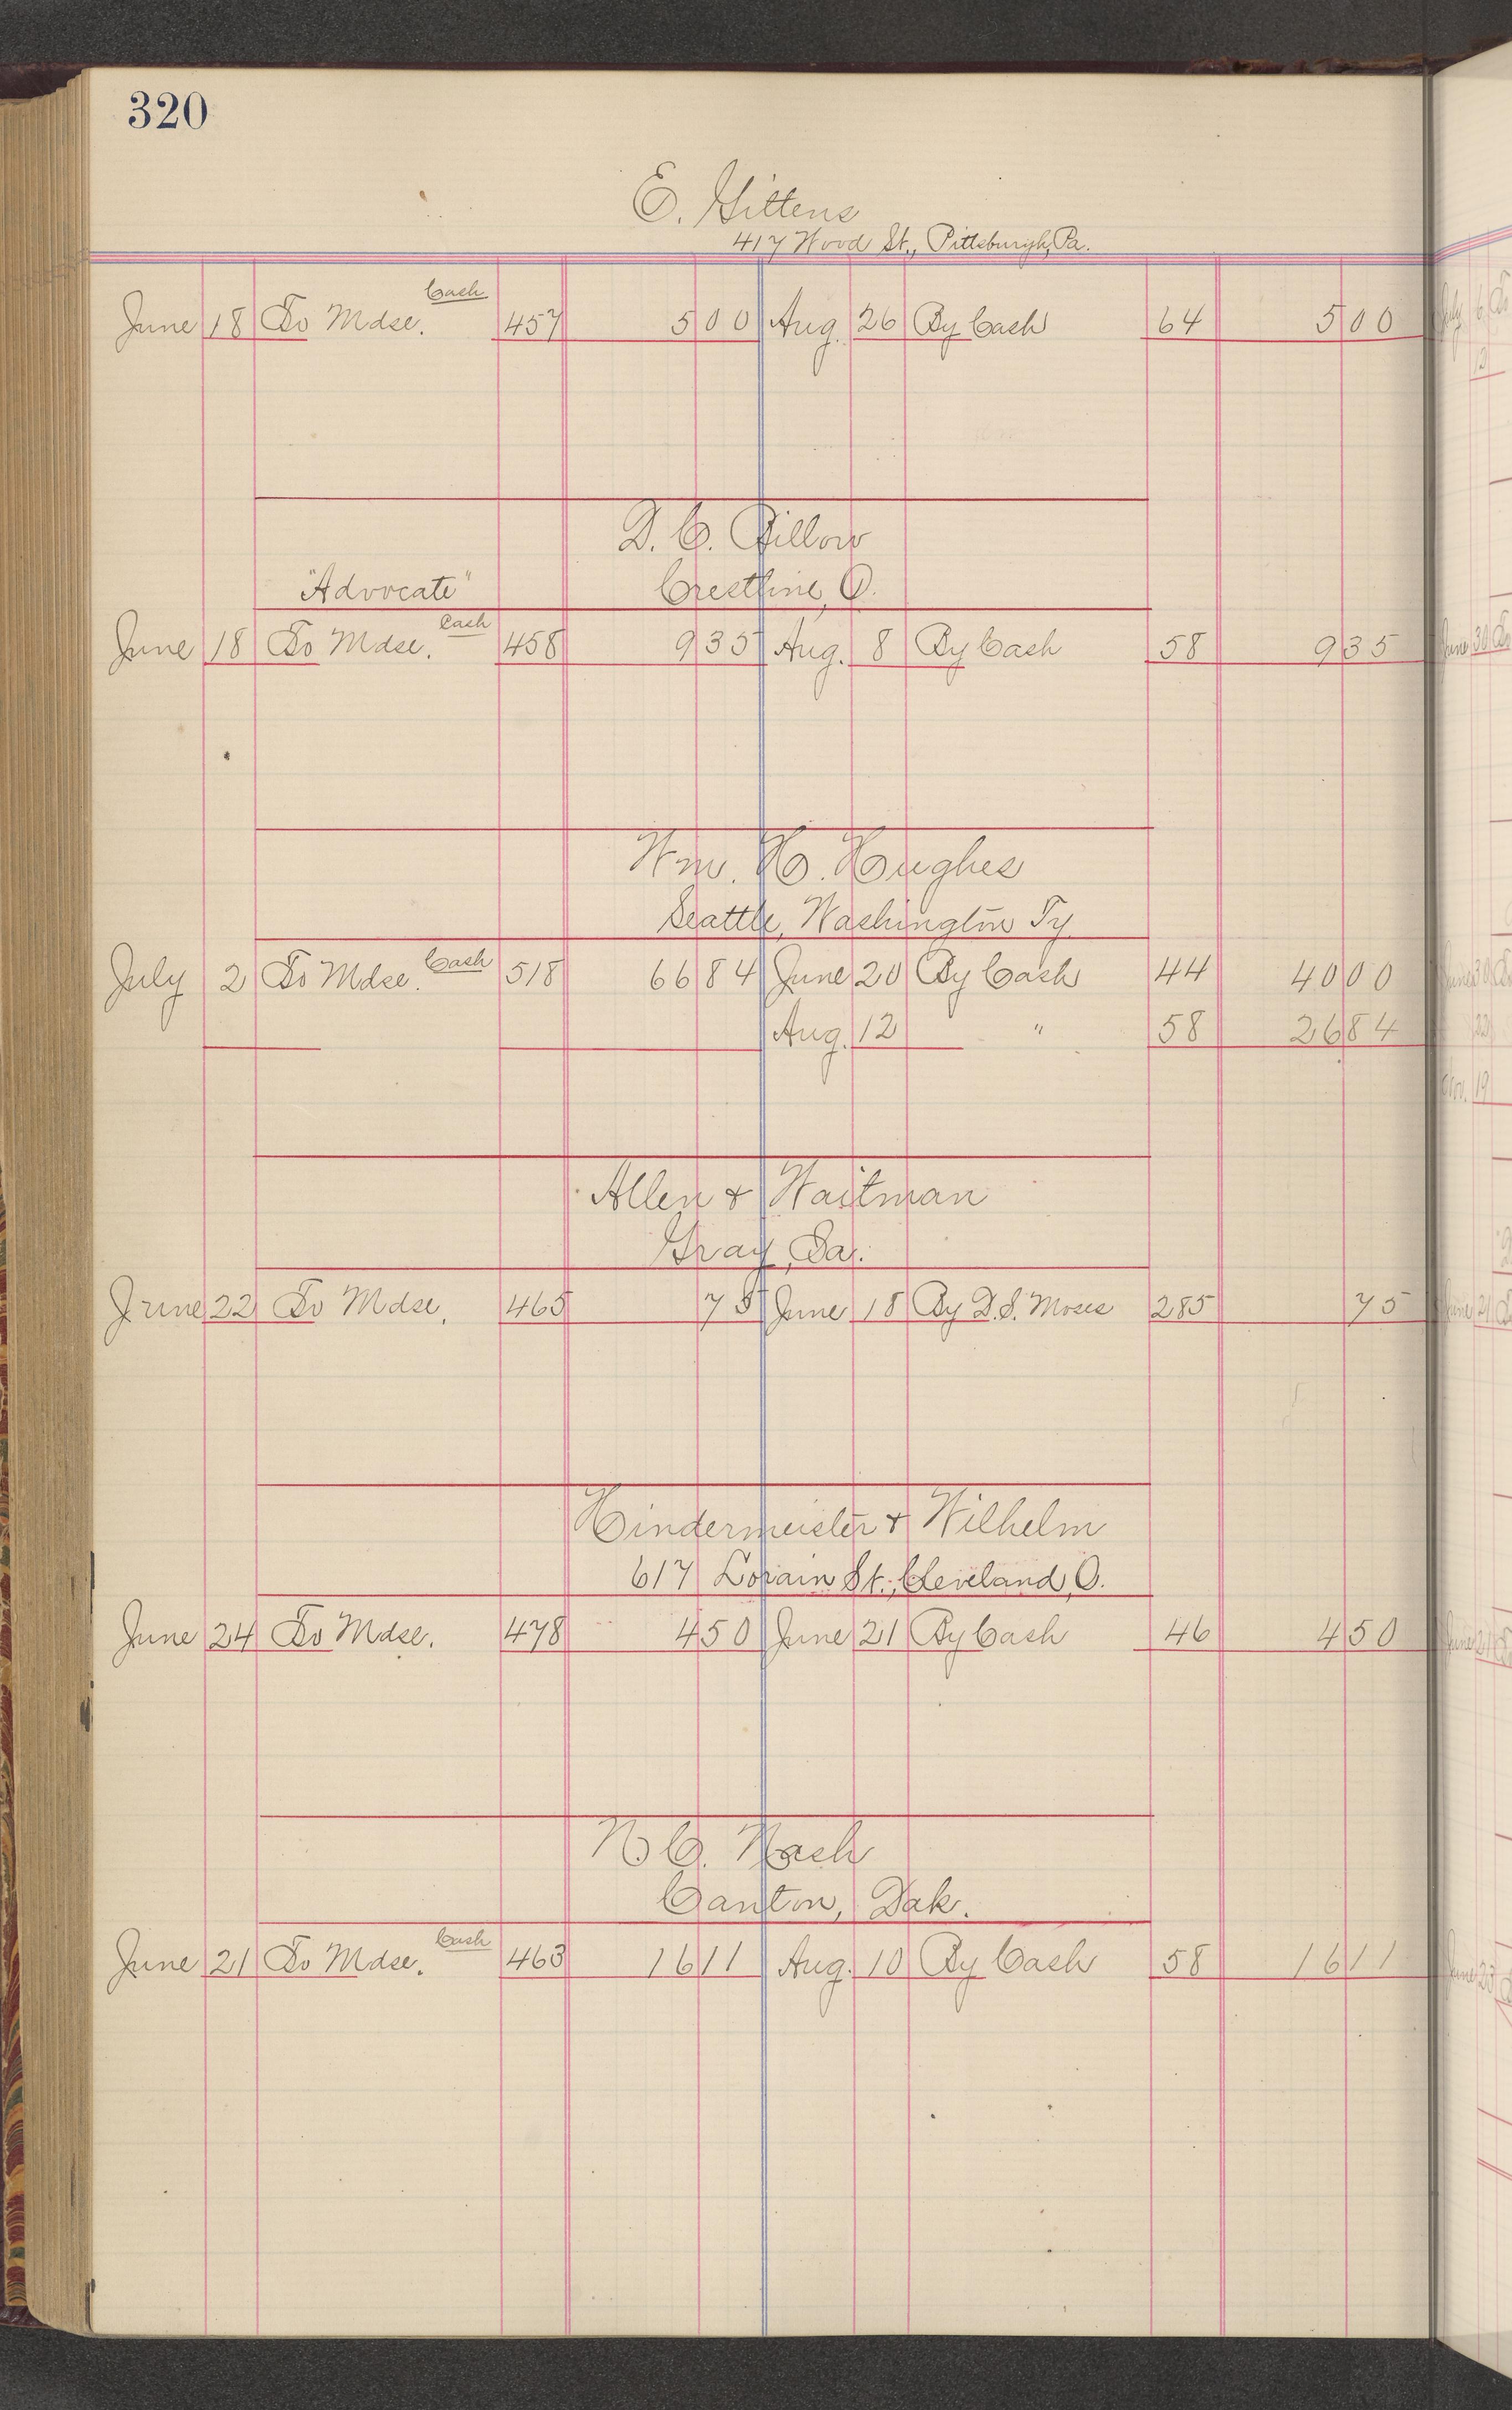 320
E. Gittens
417 Wood St., Pittsburgh, Pa.
June 18 To Mdse. Cash 457 5 00 Aug. 26 By Cash 64 5 00
D. C. Billow
"Advocate" Crestline, O.
June 18 To Mdse. Cash 458 9 35 Aug. 8 By Cash 58 9 35
Wm. H. Hughes
Seattle, Washington Ty.
July 2 To Mdse. Cash 518 66 84 June 20 By Cash 44 40 00
Aug. 12 " 58 26 84
Allen & Waitman
Gray, Ia.
June 22 To Mdse. 465 75 June 18 By D.S. Moses 285 75
Hindermeister & Wilhelm
617 Lorain St., Cleveland, O.
June 24 To Mdse. 478 4 50 June 21 By Cash 46 4 50
N. C. Nash
Canton, Dak.
June 21 To Mdse. Cash 463 16 11 Aug. 10 By Cash 58 16 11